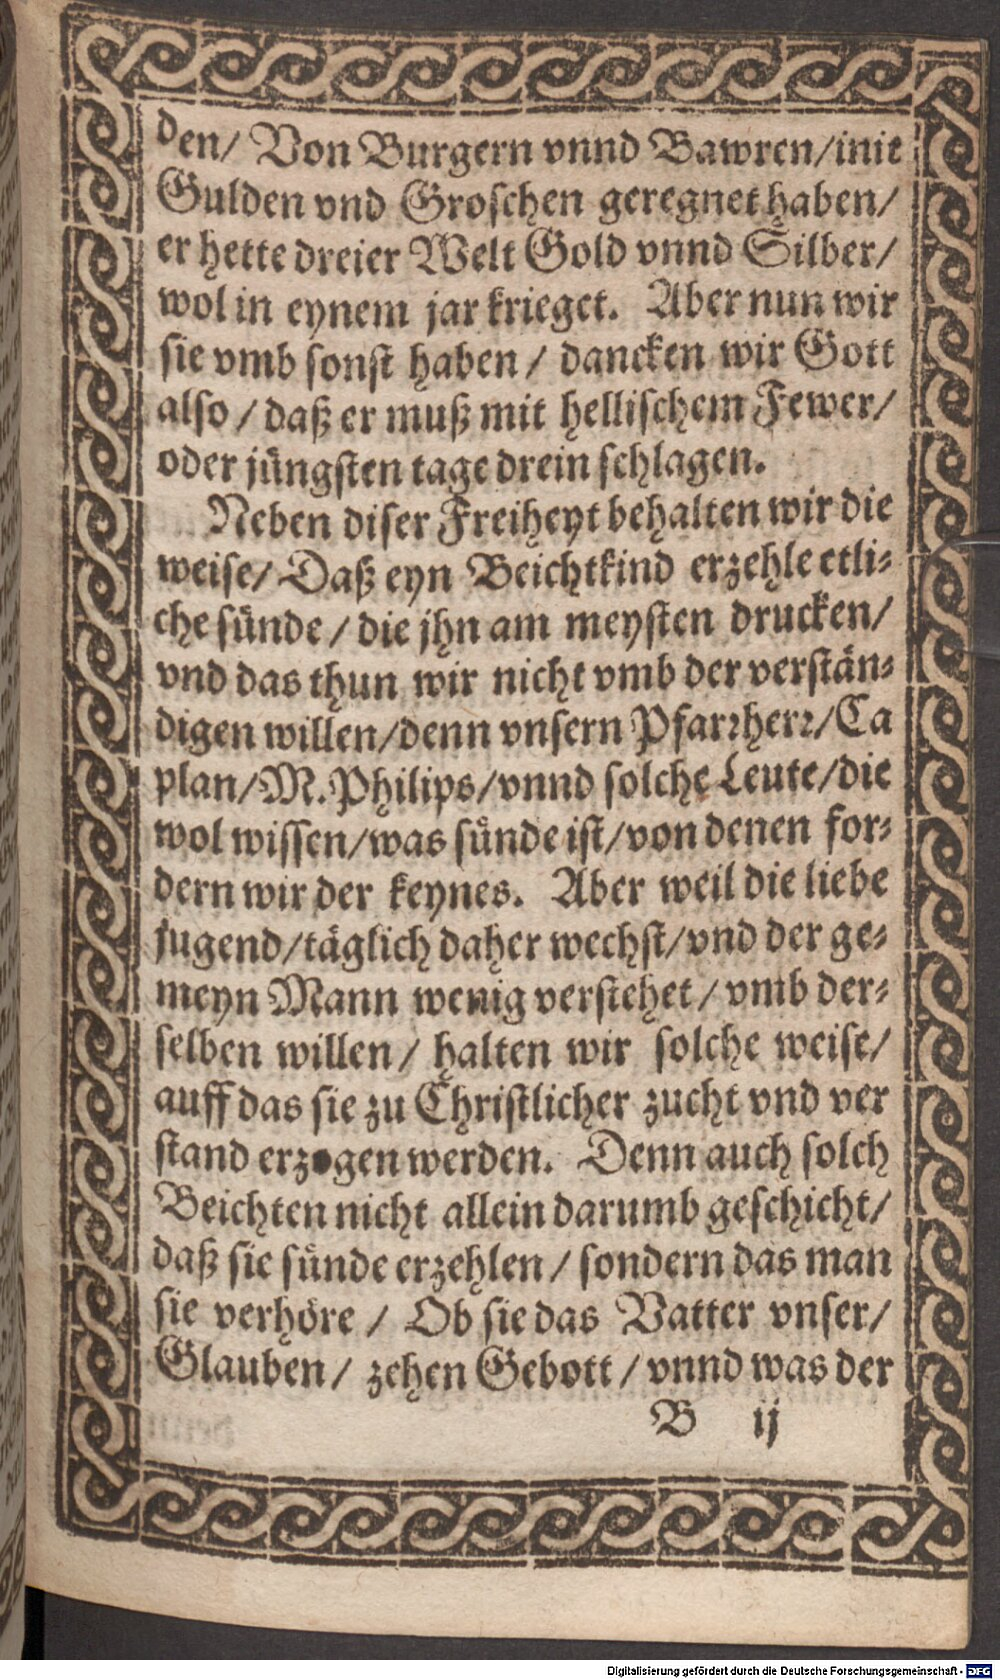 den/ Von Burgern vnnd Bawren/mit
Gulden vnd Groschen geregnet haben/
er hette dreier Welt Gold vnnd Silber/
wol in eynem jar krieget. Aber nun wir
sie vmb sonst haben / dancken wir Gott
also / daß er muß mit hellischem Fewer/
oder jüngsten tage drein schlagen.
Neben diser Freiheyt behalten wir die
weise/ Daß eyn Beichtkind erzehle etli-
che sünde / die jhn am meysten drucken/
vnd das thun wir nicht vmb der verstän-
digen willen/denn vnsern Pfarrherr/Ca
plan/M. Philips/vnnd solche Leute/die
wol wissen/was sünde ist/von denen for-
dern wir der keynes. Aber weil die liebe
jugend/täglich daher wechst/vnd der ge-
meyn Mann wenig verstehet / vmb der-
selben willen / halten wir solche weise/
auff das sie zu Christlicher zucht vnd ver
stand erzogen werden. Denn auch solch
Beichten nicht allein darumb geschicht/
daß sie sünde erzehlen / sondern das man
sie verhöre / Ob sie das Vatter vnser/
Glauben / zehen Gebott / vnnd was der
B ij
Digitalisierung gefördert durch die Deutsche Forschungsgemeinschaft - DFG